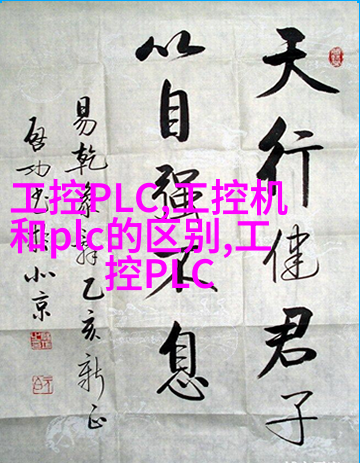 工控PLC,工控机
和plc的区别,工
控PLC
天行健君子
以自強不息
易乾象辞乙亥新正
启功书于北京